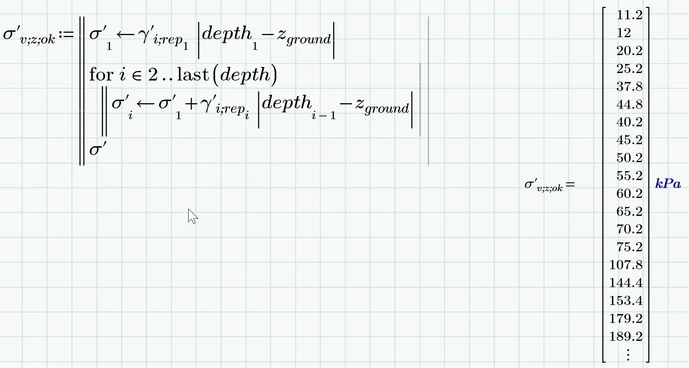 σ'v;z;ok := ‖ σ'1 ← γ'i;rep1 |depth1 − zground|
for i ∈ 2..last(depth)
‖ σ'i ← σ'1 + γ'i;repi |depthi−1 − zground|
σ'
σ'v;z;ok =
11.2
12
20.2
25.2
37.8
44.8
40.2
45.2
50.2
55.2
60.2
65.2
70.2
75.2
107.8
144.4
153.4
179.2
189.2
⋮
kPa